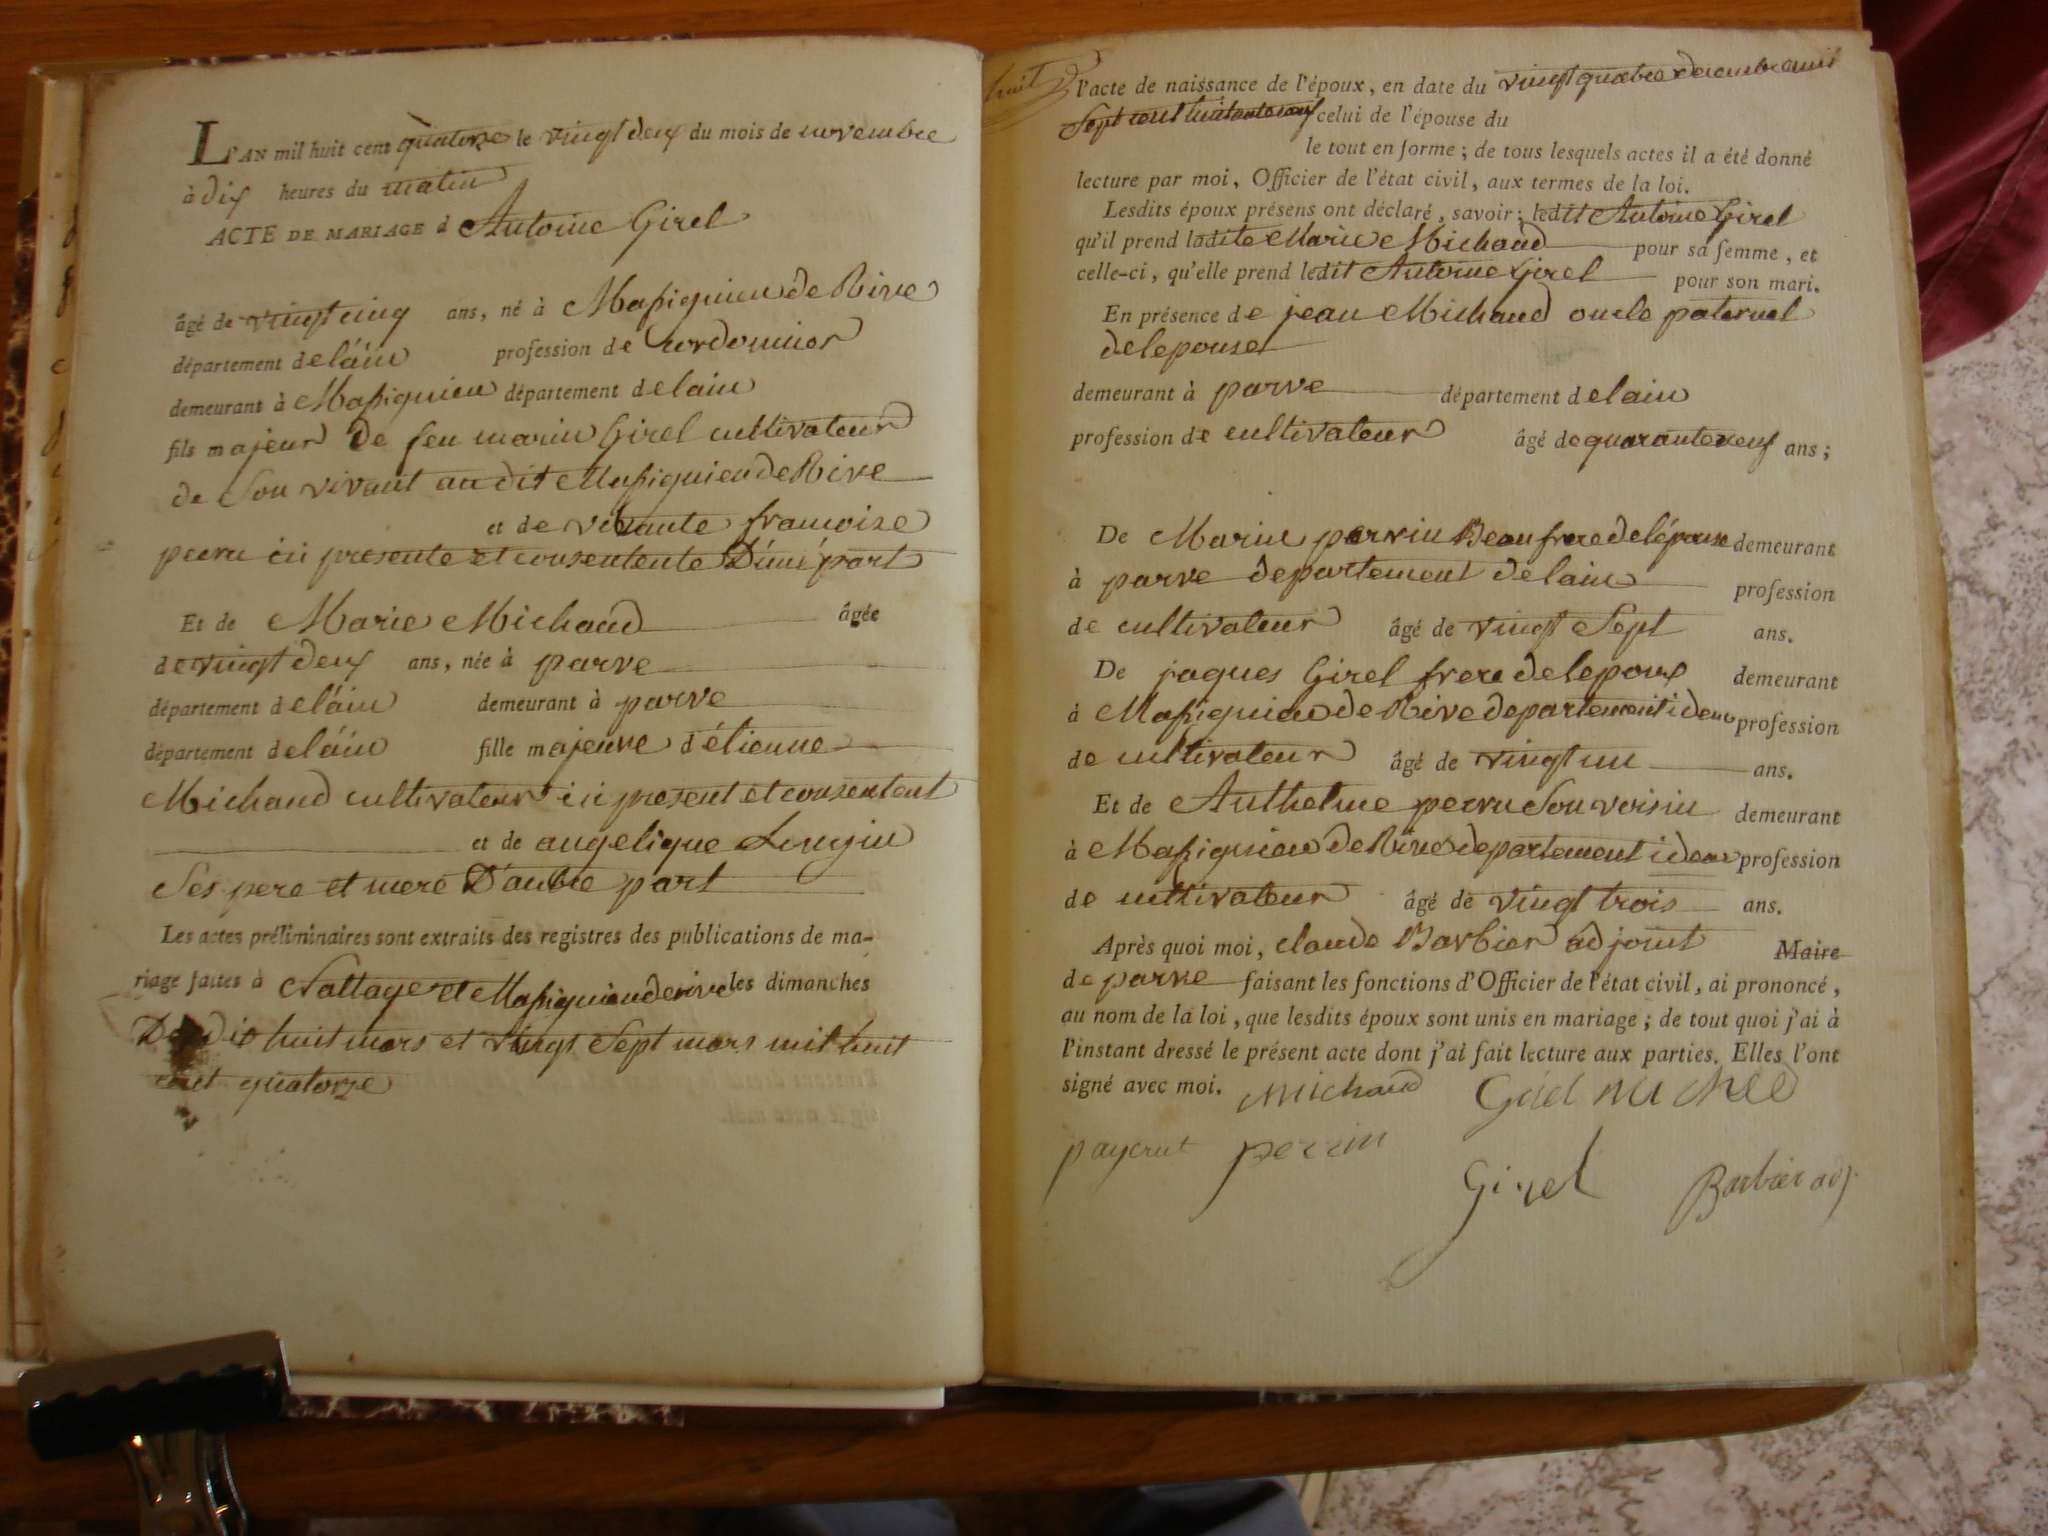 L'AN mil huit cent quatorze le vingt deux du mois de novembre
à dix heures du matin
ACTE DE MARIAGE d Antoine Girel
âgé de vingt cinq ans, né à Massignieu de Rive
département de láin profession de Cordonnier
demeurant à Massignieu département delain
fils majeur de feu marin Girel cultivateur
de Son vivant au dit Massignieu de Rive
et de vivante francoise
perru ici presente et consentente D'une part
Et de Marie Michaud âgée
de vingt deux ans, née à parve
département de láin demeurant à parve
département de láin fille majeure d'étienne
Michaud cultivateur ici present et consentent
et de angelique
Ses pere et mere D'autre part
Les actes préliminaires sont extraits des registres des publications de ma-
riage faites à Nattage et Massignieu derive les dimanches
Dix huit mars et vingt Sept mars mil huit
cent quatorze
huit
l'acte de naissance de l'époux, en date du vingt quatre decembre mil
Sept cent huitante neuf celui de l'épouse du
le tout en forme; de tous lesquels actes il a été donné
lecture par moi, Officier de l'état civil, aux termes de la loi.
Lesdits époux présens ont déclaré, savoir: ledit Antoine Girel
qu'il prend ladite Marie Michaud pour sa femme, et
celle-ci, qu'elle prend ledit Antoine Girel pour son mari.
En présence de jean Michaud oncle paternel
delepouse
demeurant à parve département delain
profession de cultivateur âgé de quarante neuf ans;
De Marin perrin Beaufrere de lépouse demeurant
à parve departement delain profession
de cultivateur âgé de vingt Sept ans.
De jaques Girel frere de lepoux demeurant
à Massignieu de Rive departement idem profession
de cultivateur âgé de vingt un ans.
Et de Anthelme perru Son voisin demeurant
à Massignieu de Rive departement idem profession
de cultivateur âgé de vingt trois ans.
Après quoi moi, claude Barbier adjoint Maire
de parve faisant les fonctions d'Officier de l'état civil, ai prononcé,
au nom de la loi, que lesdits époux sont unis en mariage; de tout quoi j'ai à
l'instant dressé le présent acte dont j'ai fait lecture aux parties. Elles l'ont
signé avec moi. Michaud
perrin
Girel Barbier adj